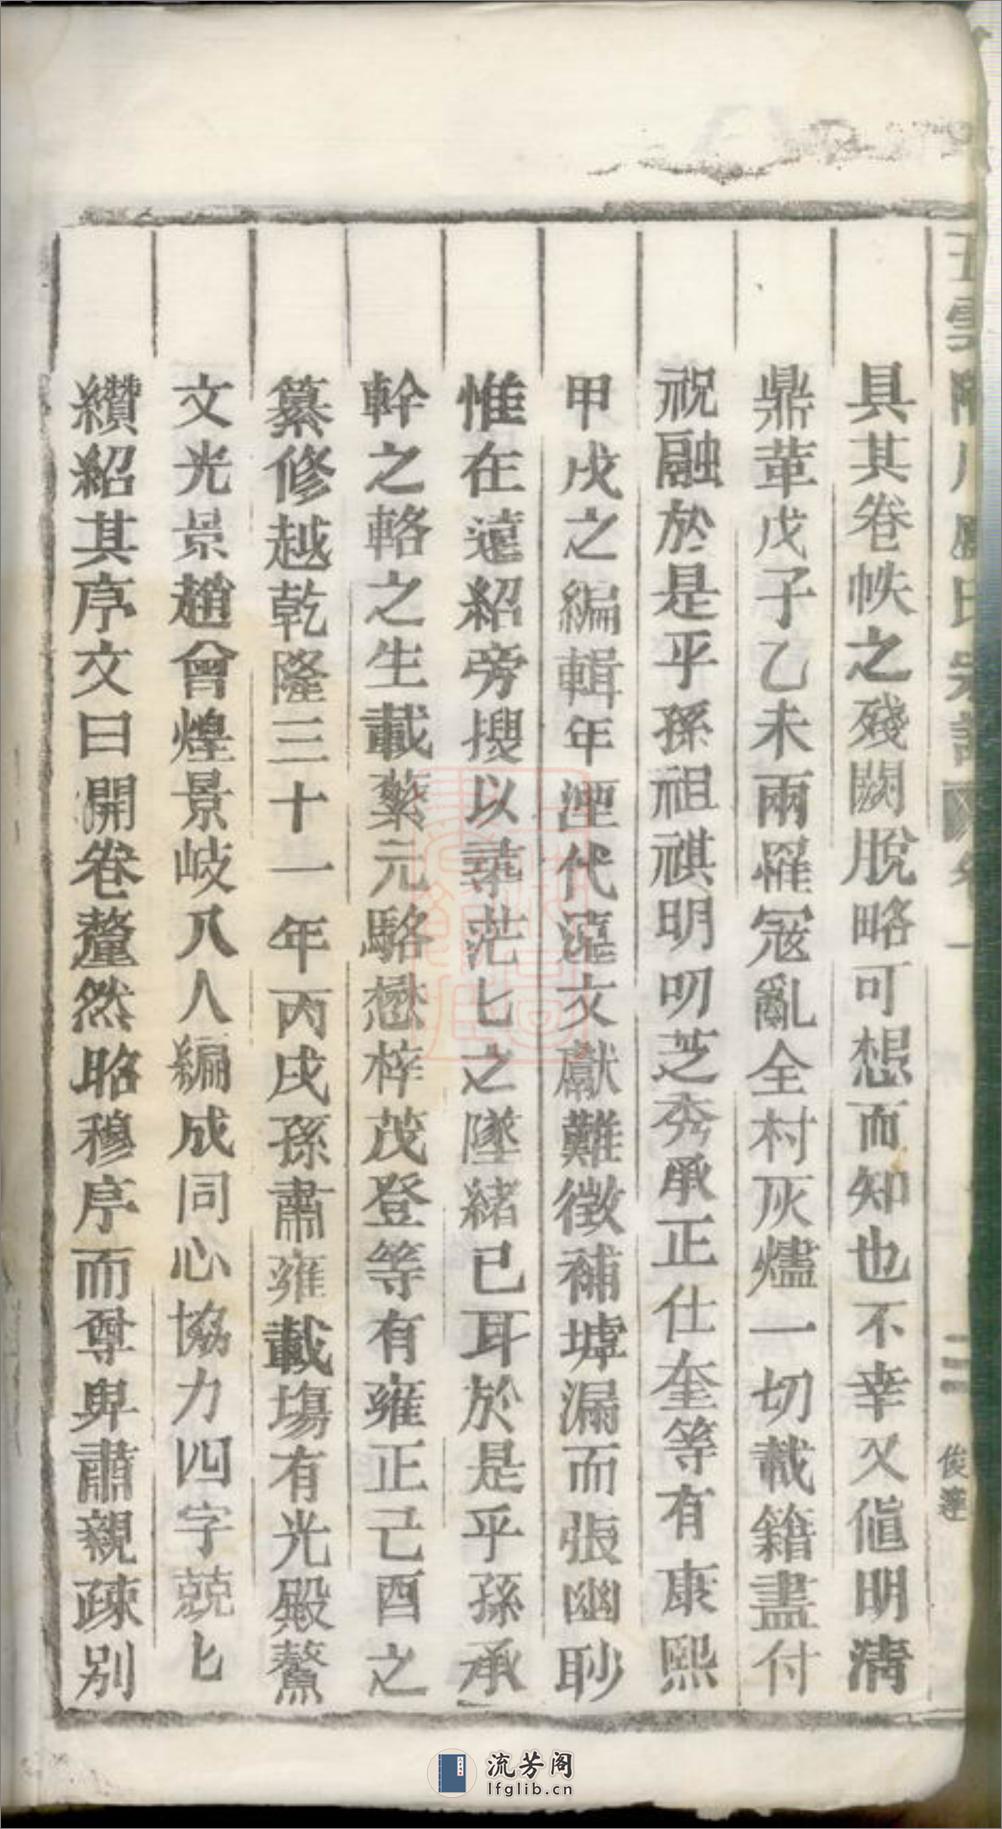 具其卷帙之殘闕脫略可想而知也不幸又值明清
鼎革戊子乙未兩罹冦亂全村灰燼一切載籍盡付
祝融於是乎孫祖祺明叨芝秀承正仕奎等有康熙
甲戌之編輯年湮代遠文獻難徵補罅漏而張幽眇
惟在遠紹旁搜以尋茫匕之墜緒已耳於是乎孫承
幹之輅之生載蘂元駱懋梓茂登等有雍正己酉之
纂修越乾隆三十一年丙戌孫肅雍載塲有光殿鰲
文光景趙曾煌景岐八人編成同心協力四字兢匕
纘紹其序文曰開卷釐然昭穆序而尊卑肅親疎別
俊達
流芳阁
lfglib.cn